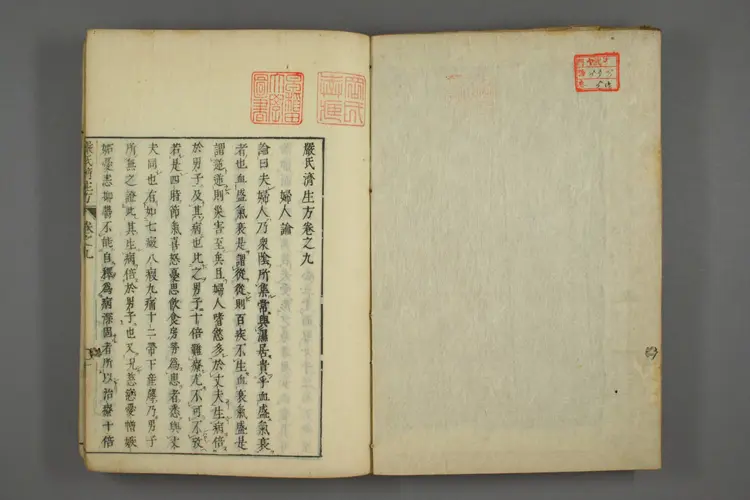 嚴氏濟生方卷之九
婦人論
論曰夫婦人乃衆陰所集常與濕居貴乎血盛氣衰
者也血盛氣衰是謂從從則百疾不生血衰氣盛是
謂逆逆則災害至矣且婦人嗜慾多於丈夫生病倍
於男子及其病也比之男子十倍難療尤不可不改
若是四時節氣喜怒憂思飲食房勞爲患者悉與丈
夫同也有如七癥八瘕九痛十二帶下産蓐乃男子
所無之證此其生病倍於男子也又況慈戀愛憎嫉
妬憂恚抑鬱不能自釋爲病深固者所以治療十倍
嚴氏濟生方 卷之九